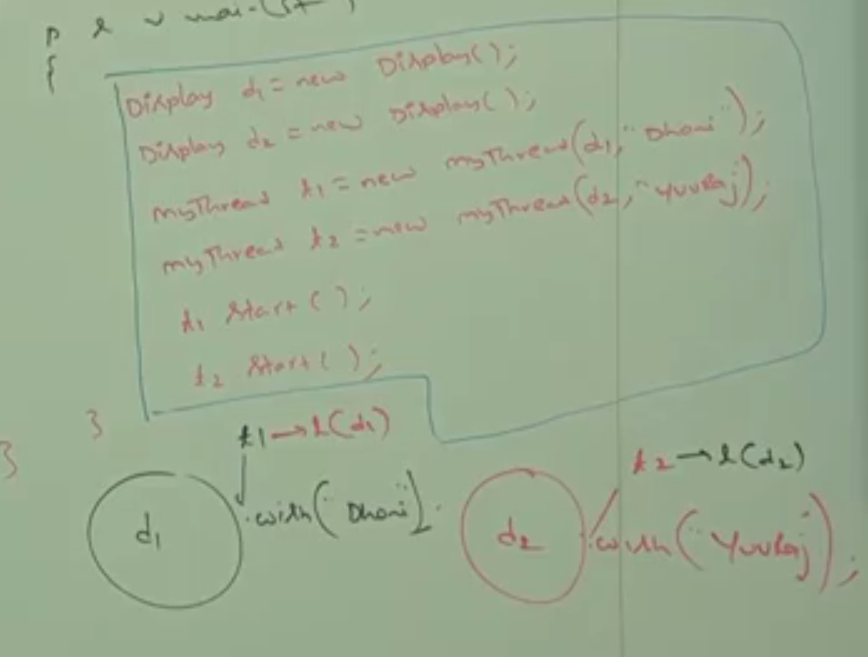 p s v mai-(St
{
Display d1 = new Display();
Display d2 = new Display();
myThread t1 = new myThread(d1,"Dhoni");
myThread t2 = new myThread(d2,"Yuvraj);
t1 Start();
t2 Start();
}
}
t1→l(d1)
t2→l(d2)
d1 .wish("Dhoni").
d2 .wish("Yuvraj);